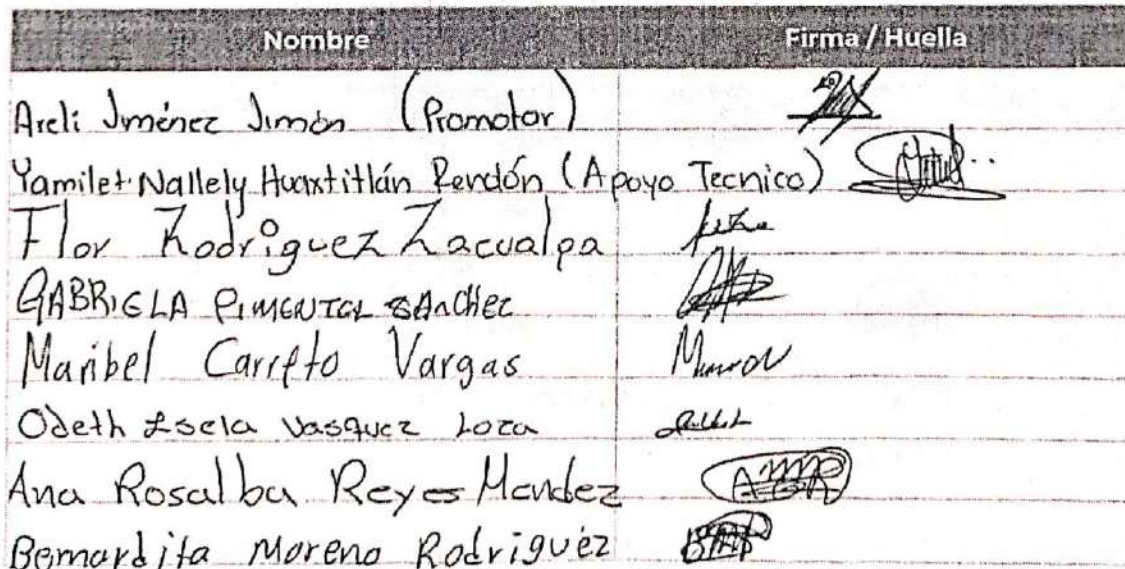 Nombre Firma / Huella
Areli Jiménez Jimón (Promotor)
Yamilet Nallely Huaxtitlán Rendón (Apoyo Tecnico)
Flor Rodriguez Zacualpa
GABRIELA PIMENTEL SANCHEZ
Maribel Carreto Vargas
Odeth Esela Vasquez Loza
Ana Rosalba Reyes Mendez
Bernardita Moreno Rodriguez